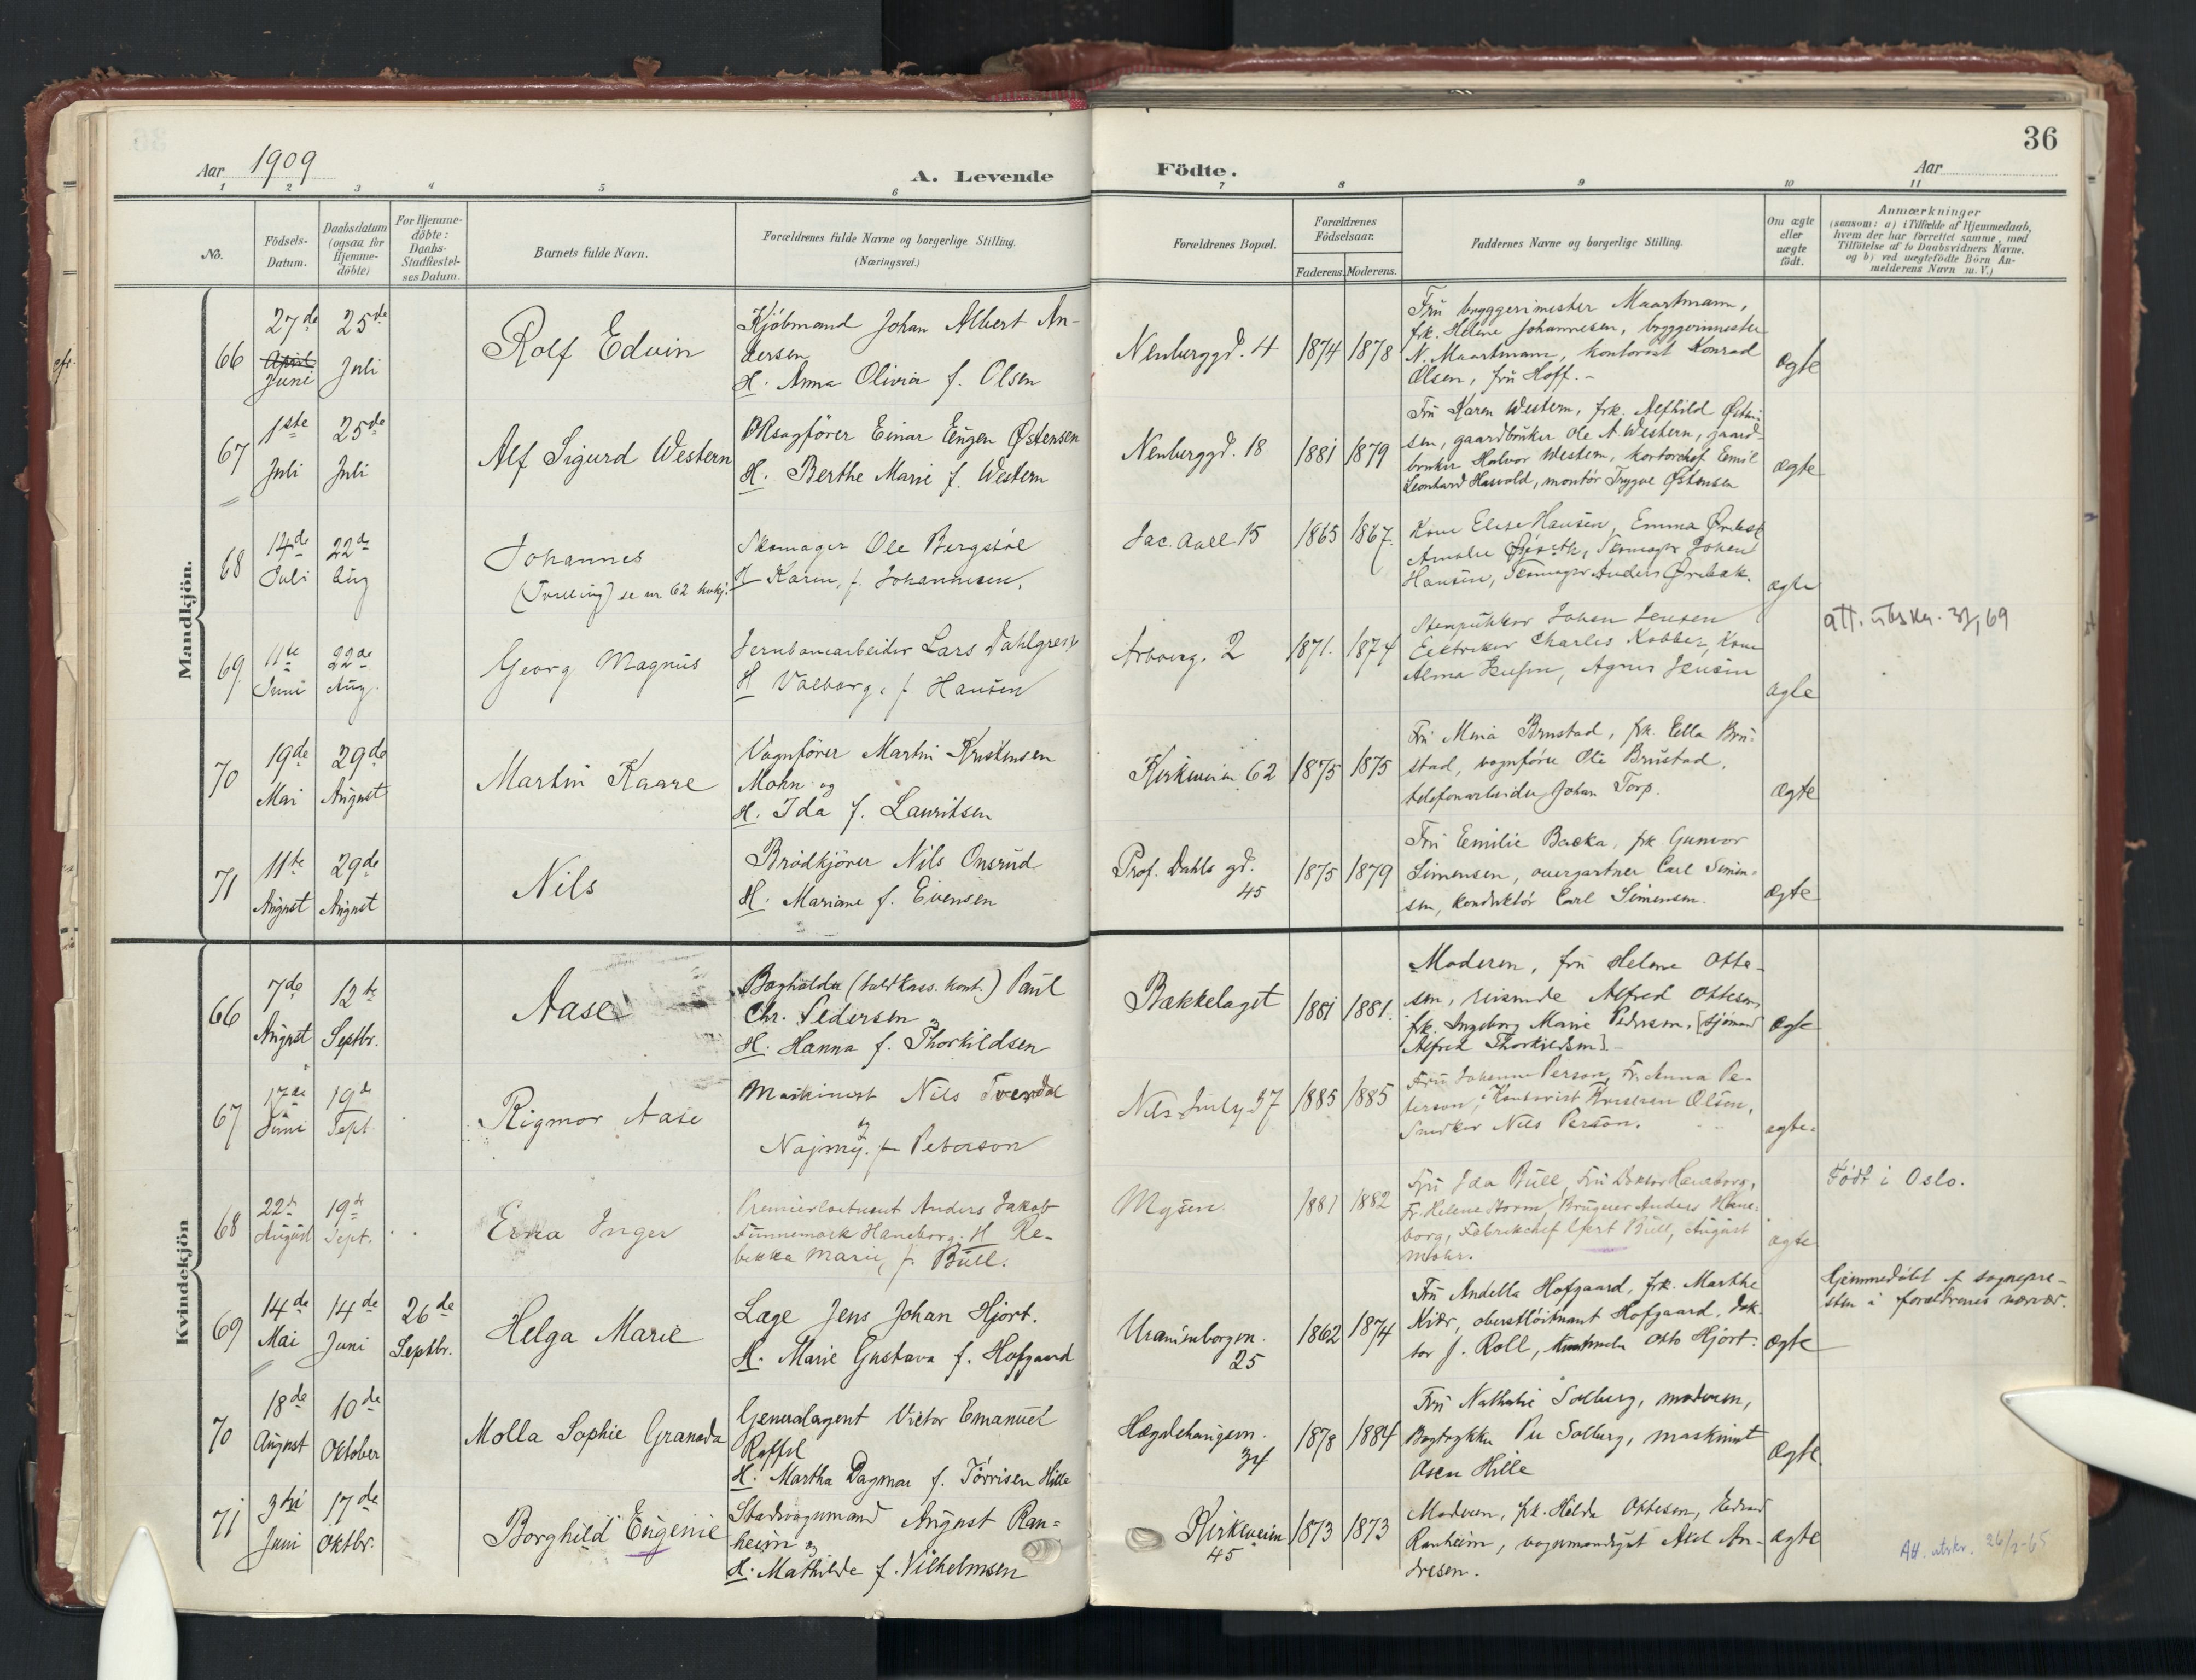 36
Aar 1909
A. Levende
Födte.
Aar
1 2 3 4 5 6 7 8 9 10 11
No.
Födsels-
Datum.
Daabsdatum
(ogsaa for
Hjemme-
döbte)
For Hjemme-
döbte:
Daabs-
Stadfæstel-
ses Datum.
Barnets fulde Navn.
Forældrenes fulde Navne og borgerlige Stilling.
(Næringsvei.)
Forældrenes Bopæl.
Forældrenes
Födselsaar.
Faderens. Moderens.
Faddernes Navne og borgerlige Stilling.
Om ægte
eller
uægte
födt.
Anmærkninger
(saasom: a) i Tilfælde af Hjemmedaab,
hvem der har forrettet samme, med
Tilföielse af to Daabsvidners Navne,
og b) ved uægtefödte Börn An-
melderens Navn m. V.)
Mandkjön.
66
27de
April
Juni
25de
Juli
Rolf Edvin
Kjöbmand Johan Albert An-
dersen
H. Anna Olivia f. Olsen
Nenberggd. 4
1874 1878
Fru bryggerimester Maartmann,
frk. Helene Johannesen, bryggerimester
N. Maartmann, kontorist Konrad
Olsen, fru Hoff.-
ægte
67
1ste
Juli
25de
Juli
Alf Sigurd Western
ORsagförer Einar Eugen Østensen
H. Berthe Marie f. Western
Nenberggd. 18
1881 1879
Fru Karen Western, frk. Alfhild Østen-
sen, gaardbruker Ole A. Western, gaard-
bruker Halvor Western, kontorchef Emil
Leonhard Hasvold, montör Trygve Østensen
ægte
68
14de
Juli
22de
Aug
Johannes
(Tvilling) se nr 62 kvkj.
Skomager Ole Bergstöl
H Karen, f. Johannesen.
Jac. Aall 15
1865 1867.
Kone Elise Hansen, Emma
Amalie Skomager Johan
Hansen, Skomager Anders
ægte
69.
11te
Juni
22de
Aug.
Georg Magnus
Jernbanearbeider Lars Dahlgren
H Valborg, f Hansen
Arboerg. 2
1871. 1874
Johan Jensen
Charles Kobber, Kone
Alma Agnes Jensen
ægte
att. utskr. 69
70
19de
Mai
29de
August
Martin Kaare
Vognförer Martin Kristensen
Mohn og
H. Ida f. Lauritsen
Kirkeveien 62
1875 1875
Fru Mina Brustad, frk. Ella Bru-
stad, vognförer Ole Brustad,
telefonarbeider Johan Torp.
ægte
71
11te
August
29de
August
Nils
Brödkjörer Nils Onsrud
H. Mariane f. Evensen
Prof. Dahls gd.
45
1875 1879
Fru Emilie Backa, frk Gunvor
Simensen, overgartner Carl Simen-
sen, konduktör Carl Simensen.
ægte
Kvindekjön
66
7de
August
12te
Septbr.
Aase
Bogholder (toldkass. kont.) Paul
Chr. Pedersen og
H. Hanna f. Thorkildsen
Bækkelaget
1881 1881.
Moderen, fru Helene Otte-
sen, reisende Alfred Ottesen,
frk. Ingeborg Marie Pedersen, [sjömand
Alfred Thorkildsen].-
ægte
67
17de
Juni
19de
Sept.
Rigmor Aase
Maskinist Nils Tverdal
og
Najmy. f Peterson
Nils Juelg 37
1885 1885
Fru Johanne Person, Fr. Anna Pe-
terson, Kontorist Olsen,
Snedker Nils Person.
ægte.
68
22de
August
19de
Sept.
Erna Inger
Premierlöitnant Anders Jakob
Finnemark Haneborg. H Re-
bekka Marie, f. Bull.
Mysen.
1881 1882
Fru Ida Bull, Fru Doktor Haneborg,
Fr. Helene Storm, Bruger Anders Hane-
borg, Fabrikchef Bull, August
Mohr.
ægte
Födt i Oslo.
69
14de
Mai
14de
Juni
26de
Septbr.
Helga Marie
Læge Jens Johan Hjort.
H. Marie Gustava f. Hofgaard
Uranienborgvn.
25
1862 1874
Fru Andella Hofgaard, frk. Marthe
Kiær, oberstlöitnant Hofgaard, dok-
tor J. Roll, Otto Hjort.
ægte
Hjemmedöbt af sognepre-
sten i forældrenes nærvær.
70
18de
August
10de
Oktober
Molla Sophie Granada
Generalagent Victor Emanuel
Roffel
H. Martha Dagmar f. Törrisen Hille
Hægdehaugsvn.
34
1878 1884
Fru Nathalie Solberg, moderen,
Bogtrykker Per Solberg, maskinist
Osen Hille
ægte
71
3die
Juni
17de
Oktbr.
Borghild Eugenie
Stadsvognmand August Ran-
heim og
H. Mathilde f. Vilhelmsen
Kirkeveien
45
1873 1873
Moderen, frk. Helda Ottesen, Edvard
Ranheim, vognmandsgut Aksel An-
dresen.
ægte
Att. utskr. 26/7-65